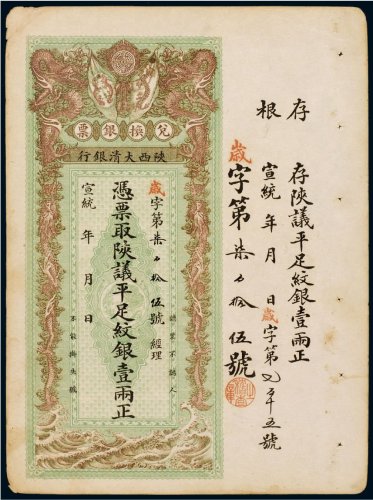 存根
存陝議平足紋銀壹兩正
宣統 年 月 日 歲字第 五號
歲字第柒 拾伍號
兌換銀票
陝西大清銀行
認票不認人
歲字第柒 拾伍號 經理
憑票取陝議平足紋銀壹兩正
宣統 年 月 日
不能掛失號